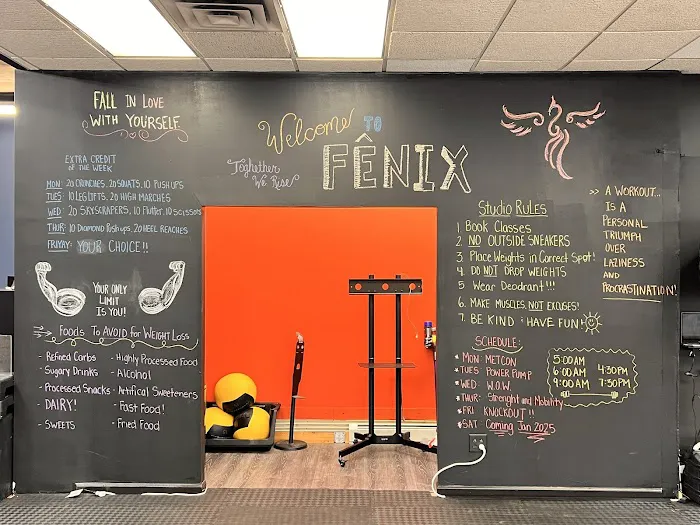 FALL IN LOVE
WITH YOURSELF
EXTRA CREDIT
OF THE WEEK
MON: 20 CRUNCHES, 20 SQUATS, 10 PUSH UPS
TUES: 10 LEG LIFTS, 20 HIGH MARCHES
WED: 20 SKYSCRAPERS, 10 Flutter, 10 SCISSORS
THUR: 10 DIAMOND PUSH UPS, 20 HEEL REACHES
FRIYAY: YOUR CHOICE!!
YOUR ONLY
LIMIT
IS YOU!
Foods To AVOID for WEIGHT LOSS
- Refined Carbs
- Sugary Drinks
- Processed Snacks
- DAIRY!
- SWEETS
- Highly Processed Food
- Alcohol
- Artifical Sweeteners
- Fast Food!
- Fried Food
Welcome TO
FÊNIX
Toghether
We Rise
Studio RULES
1 Book Classes
2. NO OUTSIDE SNEAKERS
3. Place Weights in Correct Spot!
4. DO NOT DROP WEIGHTS
5 Wear Deodrant!!!
6. MAKE MUSCLES, NOT EXCUSES!
7. BE KIND & HAVE FUN!
SCHEDULE:
* MON: METCON
* TUES POWER PUMP
* WED: W.O.W.
* THUR: Strenght and Mobility
* FRI KNOCKOUT!!
* SAT Coming Jan 2025
5:00AM
6:00AM 4:30PM
9:00AM 7:30PM
>> A WORKOUT...
IS A
PERSONAL
TRIUMPH
OVER
LAZINESS
AND
PROCRASTINATION!